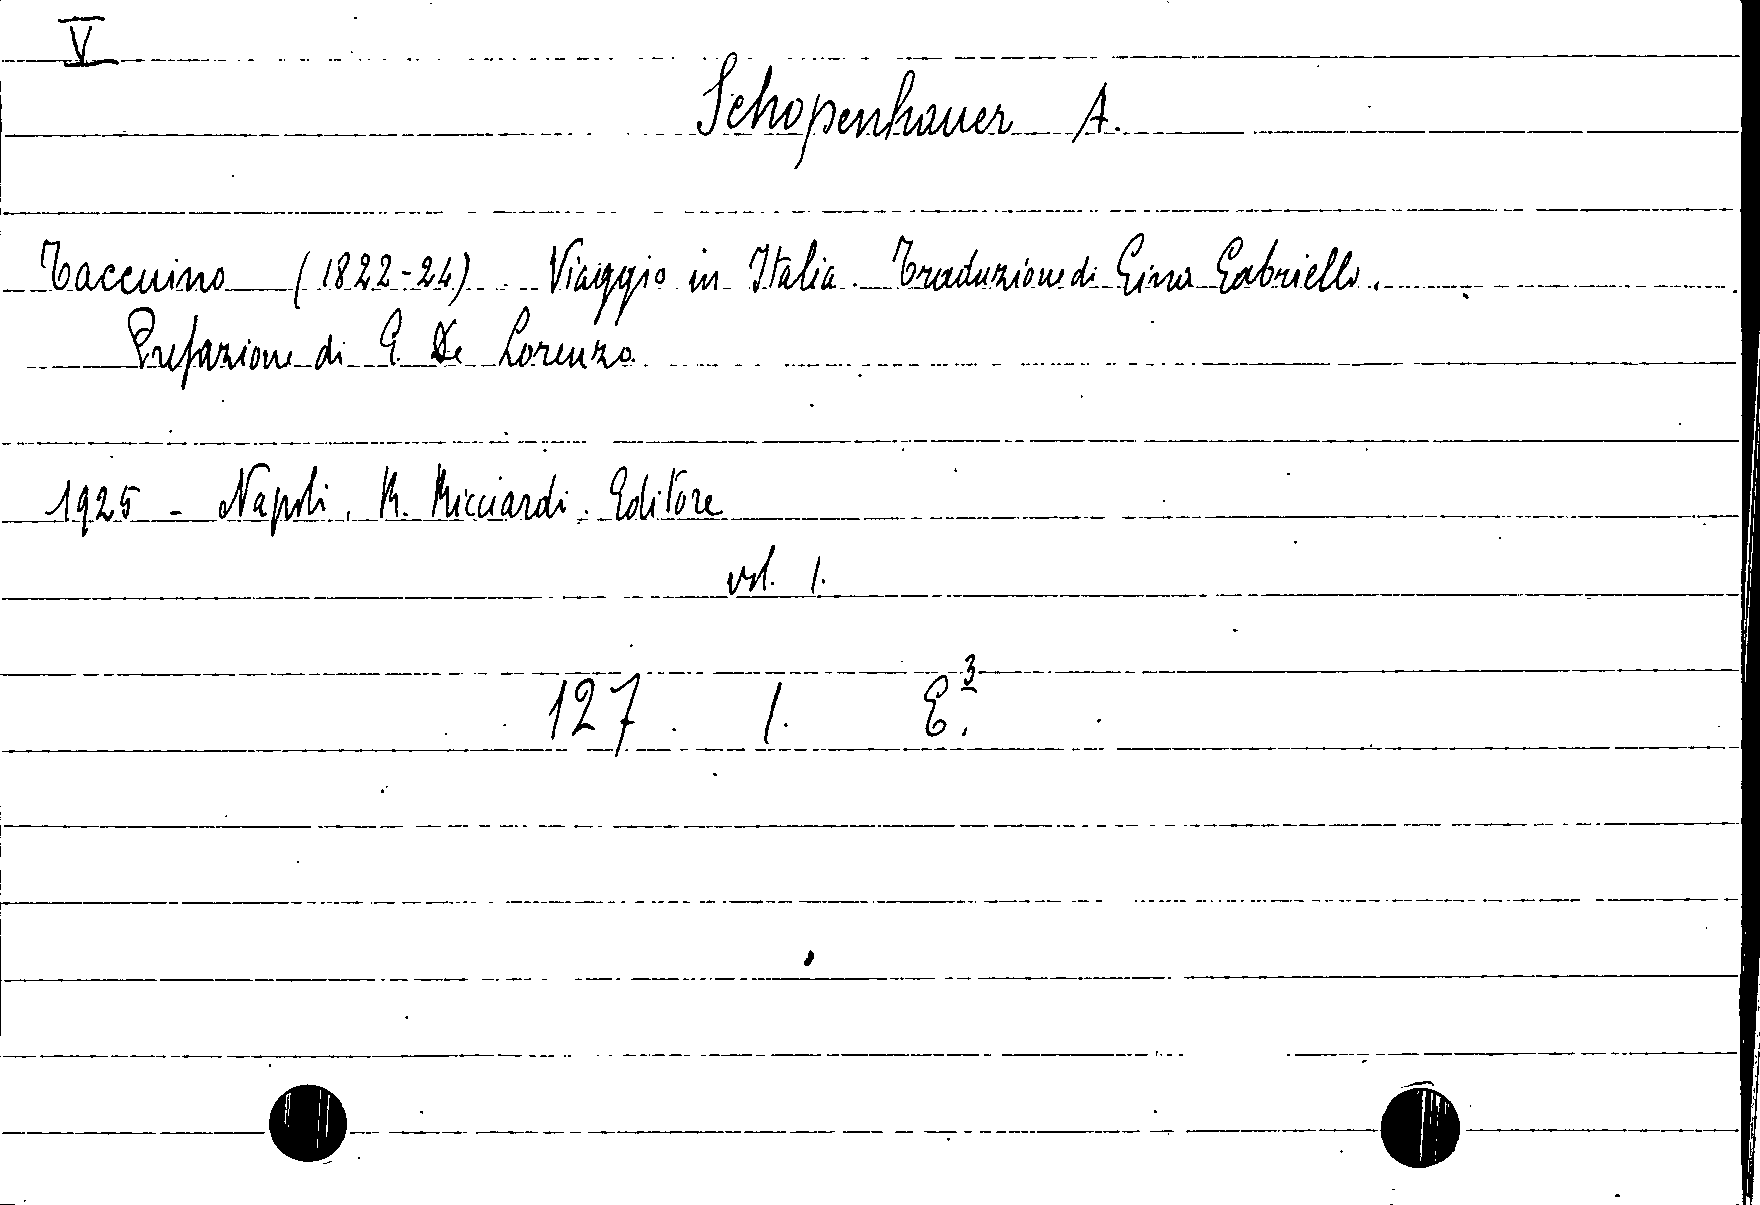 V
Schopenhauer A.
Taccuino (1822-24) Viaggio in Italia. Traduzione di Gina Gabrielli.
Prefazione di G. De Lorenzo.
1925 - Napoli. R. Ricciardi. Editore
vol. 1.
127. 1. E.³